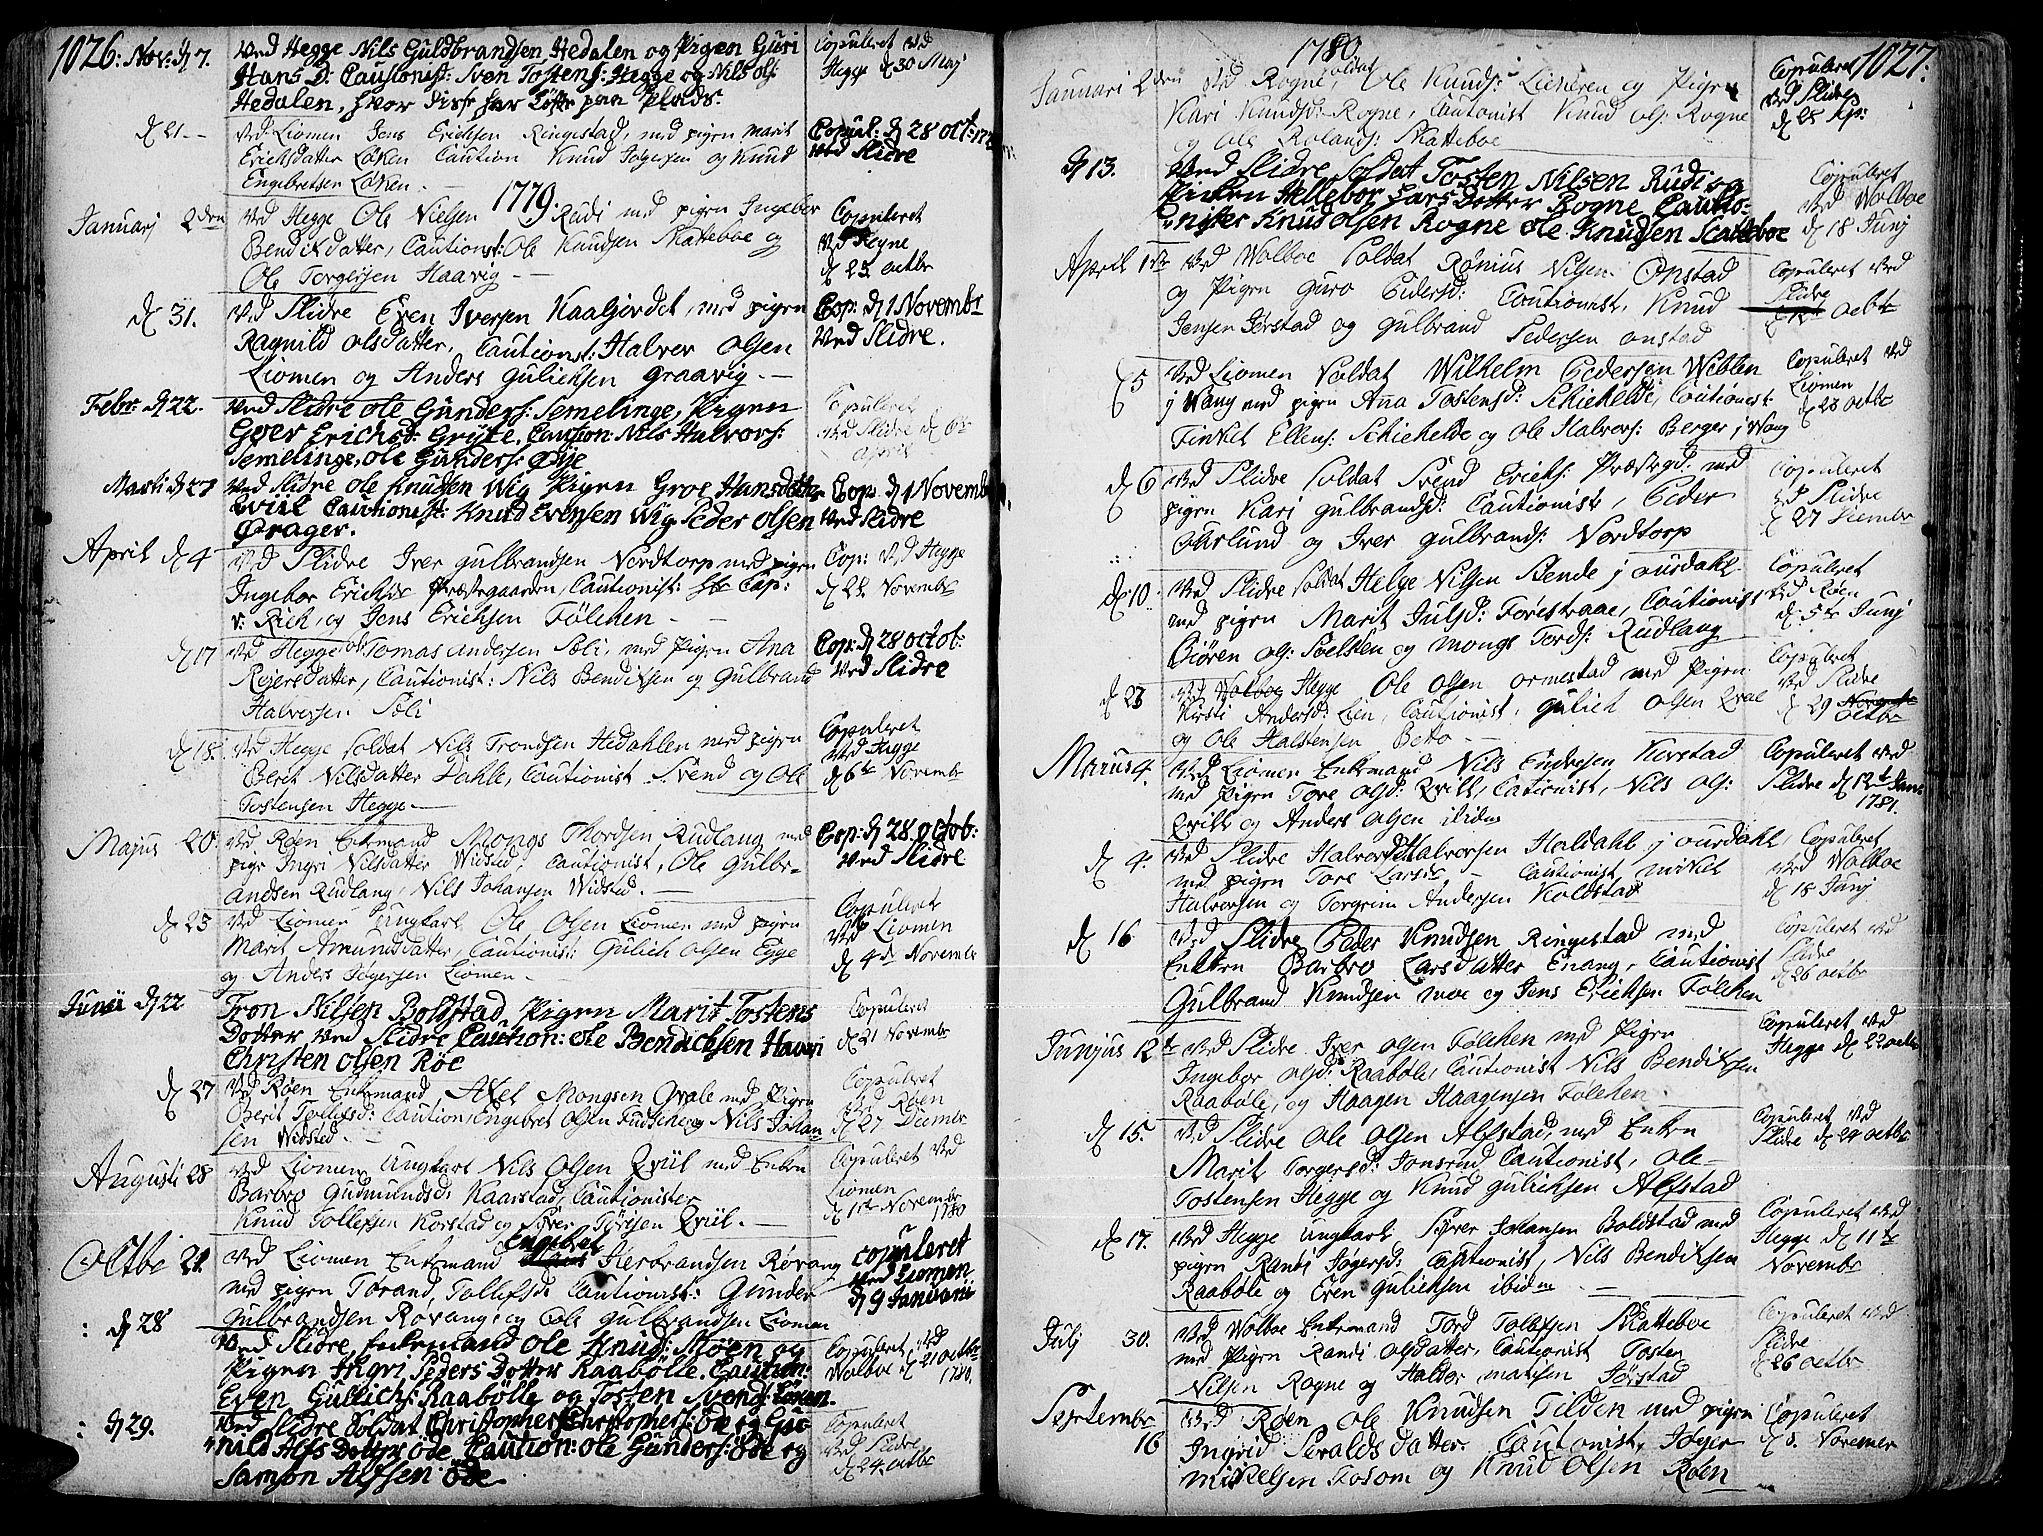 1026: Nov: d 7. Ved Hegge Nils Guldbrandsen Hedalen og Pigen Guri
Hans D: Cautionist: Sven Tostens: Hegge og Nils Ols:
Hedalen, hvor disse har Løfte paa Plads.
Copuleret ved
Hegge d 30 Maj
d 21 - Ved Liomen Jens Erichsen Ringestad, med pigen Marit
Erichsdatter Løken Caution Knud Jøgersen og Knud
Engebretsen Løken. -
Copul: d 28 Oct: 17
Ved Slidre
1779.
Januarj 2den Ved Hegge Ole Nielsen Rudi med pigen Ingebor
Bendixdatter, Cautionst: Ole Knudsen Skatteboe og
Ole Torgersen Haavig -
Copuleret
Ved Rogne
d 23 octbr
d 31. Ved Slidre Even Iversen Kaalgjerdet, med pigen
Ragnild Olsdatter, Cautionst: Halvor Olsen
Liomen og Anders Gulichsen Graavig. -
Cop: d 1 Novembr
Ved Slidre.
Febr: d 22. Ved Slidre Ole Gunders: Semelinge, Pigen
Goer Erichsd: Gryte, Caution: Nils Halvors:
Semelinge, Ole Gunders: Øije
Copuleret
Ved Slidre d 6te
April
Marti d 27 Ved Slidre Ole Knudsen Wig Pigen Groe Hansdatter
Qviil Cautionist: Knud Evensen Wig Peder Olsen
Ørager.
Cop: d 1 Novemb
Ved Slidre
April d 4 Ved Slidre Iver Gulbrandsen Nordtorp med pigen
Ingebor Erichsd: Præstegaarden, Cautionist: Hr Cap:
v: Rich, og Jens Erichsen Følchen -
Cop: Ved Hegge
d 22 Novembr
d 17 Ved Hegge Tomas Andersen Sæli, med Pigen Ana
Rejersdatter, Cautionist: Nils Bendixsen og Gulbrand
Halversen Sæli
Cop: d 28 octob:
Ved Slidre
d 18. Ved Hegge Soldat Nils Trondsen Hedahlen med pigen
Berit Nilsdatter Dahle, Cautionist Svend og Ole
Tostensen Hegge -
Copuleret
Ved Hegge
d 6te Novembr
Majus 20 Ved Røen Enkemand Mongs Thordsen Rudlang med
pige Ingri Nilsdatter Widsted, Cautionist, Ole Gulbr=
andsen Rudlang, Nils Johansen Widsted. -
Cop: d 28 octob:
Ved Slidre
d 23 Ved Liomen Ungkarl Ole Olsen Liomen med pigen
Marit Amundsdatter, Cautionist: Gulich Olsen Egge
og Anders Jøgersen Liomen. -
Copuleret
Ved Liomen
d 4de Novembr
Junii d 22 Tron Nilsen Boldstad, Pigen Marit Tostens
Dotter Ved Slidre Caution: Ole Bendichsen Haveri
Christen Olsen Røe
Copuleret
d 21 Novembr
d 27 Ved Røen Enkemand Axel Mongsen Qvale med Pigen
Berit Tollefsd: Caution Engebret Olsen Fudsine og Nils Johan
sen Widsted. -
Copuleret
Ved Røen
d 27 Decembr
Augusti 28 Ved Liomen Ungkarl Nils Olsen Qviil med Enken
Barbro Gudmundsd: Kaarstad, Cautionister
Knud Tollefsen Korstad og Syver Tørisen Qviil. -
Copuleret Ved
Liomen
d 1ste Novembr
1780
Octbr 21. Ved Liomen Enkemand Engebret Herbrandsen Røvang
med pigen Torand Tollefsd: Cautionist: Gunder
Gulbrandsen Røvang, og Ole Gulbrandsen Liomen
Copuleret
Ved Liomen
d 9 Januarii
: d 28 Ved Slidre, Enkemand Ole Knud: Møen og
Pigen Ingri Peders Dotter Raabølle. Caution:
Even Gullichs: Raabølle og Tosten Svends: Lømen.
Copuleret Ved
Wolboe d 21 octbr
1780.
: d 29. Ved Slidre Soldat Christopher Christophers: Øde og Gu:
nild Alfs Dotter Øde, Caution: Ole Gunders: Øde og
Samson Alfsen Øde
Copuleret
Ved Slidre
d 24 octbr
1780 1027.
Januari 2den Ved Rogne, Soldat Ole Knuds: Lieheren og Pigen
Kari Knudsd: Rogne, Cautionist Knud Ols: Rogne
og Ole Rolands: Skatteboe
Copuleret
Ved Slidre
d 28 Sp:
d 13. Ved Slidre Soldat Tosten Nilsen Rudi og
Pichen Hellebor Lars Dotter Rogne Cautio:
nister Knud Olsen Rogne Ole Knudsen Scatteboe
Copuleret
Ved Wolboe
d 18 Junj
April 1ste Ved Wolboe Soldat Rønius Nilsen Onstad
og Pigen Guro Pedersd: Cautionist, Knud
Jensen Jørstad og Gulbrand Pedersen Onstad
Copuleret Ved
Slidre
octbr
d 5 Ved Liomen Soldat Wilhelm Pedersen Weblen
j Wang med pigen Ana Tostensd: Schiehelde, Cautionist
Finkel Ellens: Schiehelde og Ole Halvors: Berger j Wang
Copuleret Ved
Liomen
d 28 octbr
d 6 Ved Slidre Soldat Svend Erichs: Præstegd: med
pigen Kari Gulbrandsd: Cautionist, Peder
Aarlund og Iver Gulbrands: Nordtorp
Copuleret
Ved Slidre
d 27 Decembr
d 10 Ved Slidre Soldat Helge Nilsen Bende j Ourdahl
med pigen Marit Julsd: Forestraae, Cautionist
Biøren Ols: Sælsken og Mongs Tords: Rudlang
Copuleret
Ved Røen
d: 5te Junj
d 23 Ved Hegge Ole Olsen Ormestad med Pigen
Kirsti Andersd: Lien, Cautionist, Gulich Olsen Qvae
og Ole Halstensen Betto -
Copuleret
Ved Slidre
d 29 octbr
Marius 4. Ved Liomen Enkemand Nils Endresen Korstad
med pigen Tore Olsd: Qviil, Cationist, Nils Ols:
Qviil og Anders Olsen ibidm
Copuleret Ved
Slidre d 12te Janu
1781.
d 4. Ved Slidre Halvor Halvorsen Haldahl j Ourdahl
med pigen Tore Larsdr - Cautionist Mikkel
Halvorsen og Torgrim Andersen Koldstad
Copuleret
Ved Wolboe
d 18 Junj
d 16 Ved Slidre Peder Knudsen Ringestad med
Enken Barbro Larsdatter Enang, Cautionist
Gulbrand Knudsen Moe og Jens Erichsen Følchen
Copuleret Ved
Slidre
d 26 octbr
Junjus 12te Ved Slidre Iver Olsen Følchen med Pigen
Ingebor Olsd: Raabøle, Cautionist Nils Bendixsen
Raabøle, og Haagen Haagensen Følchen
Copuleret Ved
Hegge d 22 octbr
d 15. Ved Slidre Ole Olsen Alfstad, med Enken
Marit Torgersd: Jonsrud Cautionist, Ole
Tostensen Hegge og Knud Gulichsen Alfstad
Copuleret Ved
Slidre d 29 octbr
d 17. Ved Hegge Ungkarl Syver Johansen Boldstad med
pigen Randi Jøgersd: Cautionist, Nils Bendixsen
Raabøle og Even Gulichsen ibidm -
Copuleret Ved
Hegge d 11te
Novembr
Julj 30. Ved Wolboe Enkemand Tord Tollefsen Skatteboe
med Pigen Randi Olsdatter, Cautionist Tosten
Nilsen Rogne og Haldor Matisen Jørstad
Copuleret Ved
Slidre
d 26 octbr
Septembr 16 Ved Røen Ole Knudsen Tilden med pigen
Ingrid Seraldsdatter. Cautonist, Jøger
Mikkelsen Fosom og Knud Olsen Røen
Copuleret
d 8. Novemer